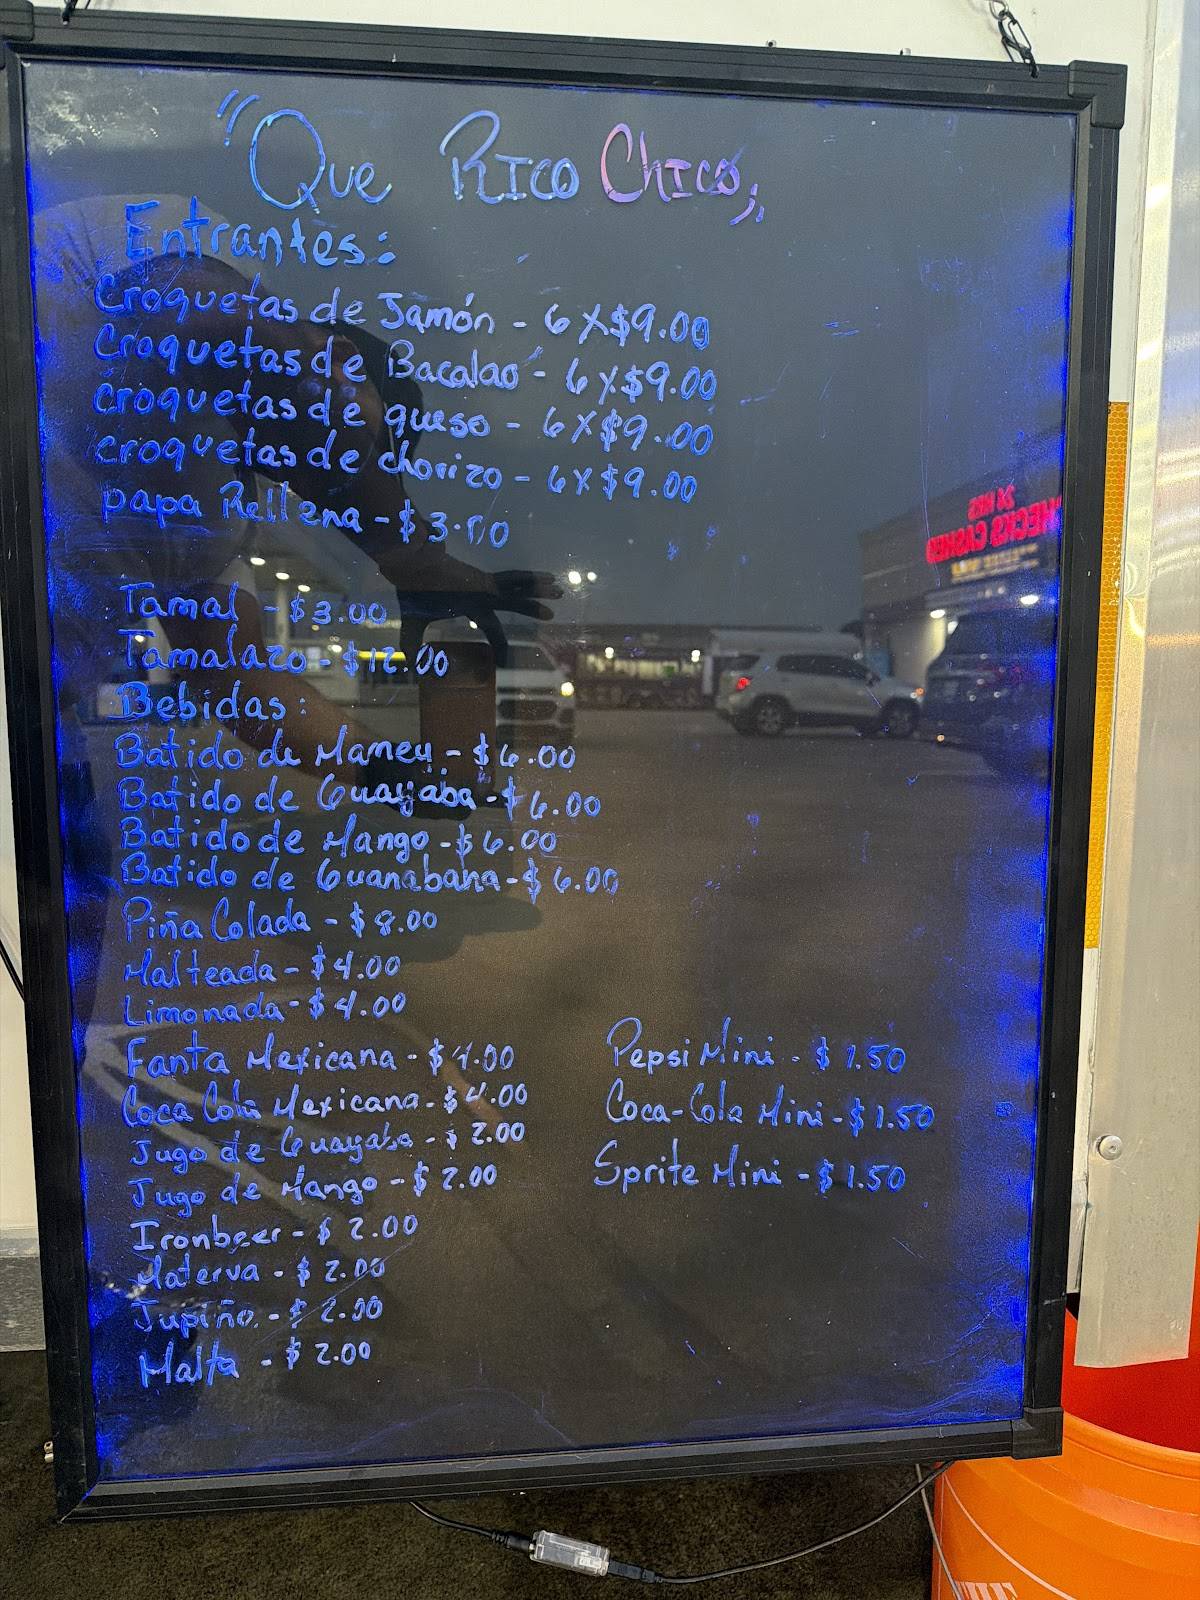 "Que Rico Chico,,
Entrantes:
Croquetas de Jamón - 6 X $9.00
Croquetas de Bacalao - 6 X $9.00
Croquetas de queso - 6 X $9.00
croquetas de chorizo - 6 X $9.00
papa Rellena - $3.00
Tamal - $3.00
Tamalazo - $12.00
Bebidas:
Batido de Mamey - $6.00
Batido de Guayaba - $6.00
Batido de Mango - $6.00
Batido de Guanabana - $6.00
Piña Colada - $8.00
Malteada - $4.00
Limonada - $4.00
Fanta Mexicana - $4.00
Coca Cola Mexicana - $4.00
Jugo de Guayaba - $2.00
Jugo de Mango - $2.00
Ironbeer - $2.00
Materva - $2.00
Jupiño. - $2.00
Malta - $2.00
Pepsi Mini - $1.50
Coca-Cola Mini - $1.50
Sprite Mini - $1.50
24 HRS
CHECKS CASHED